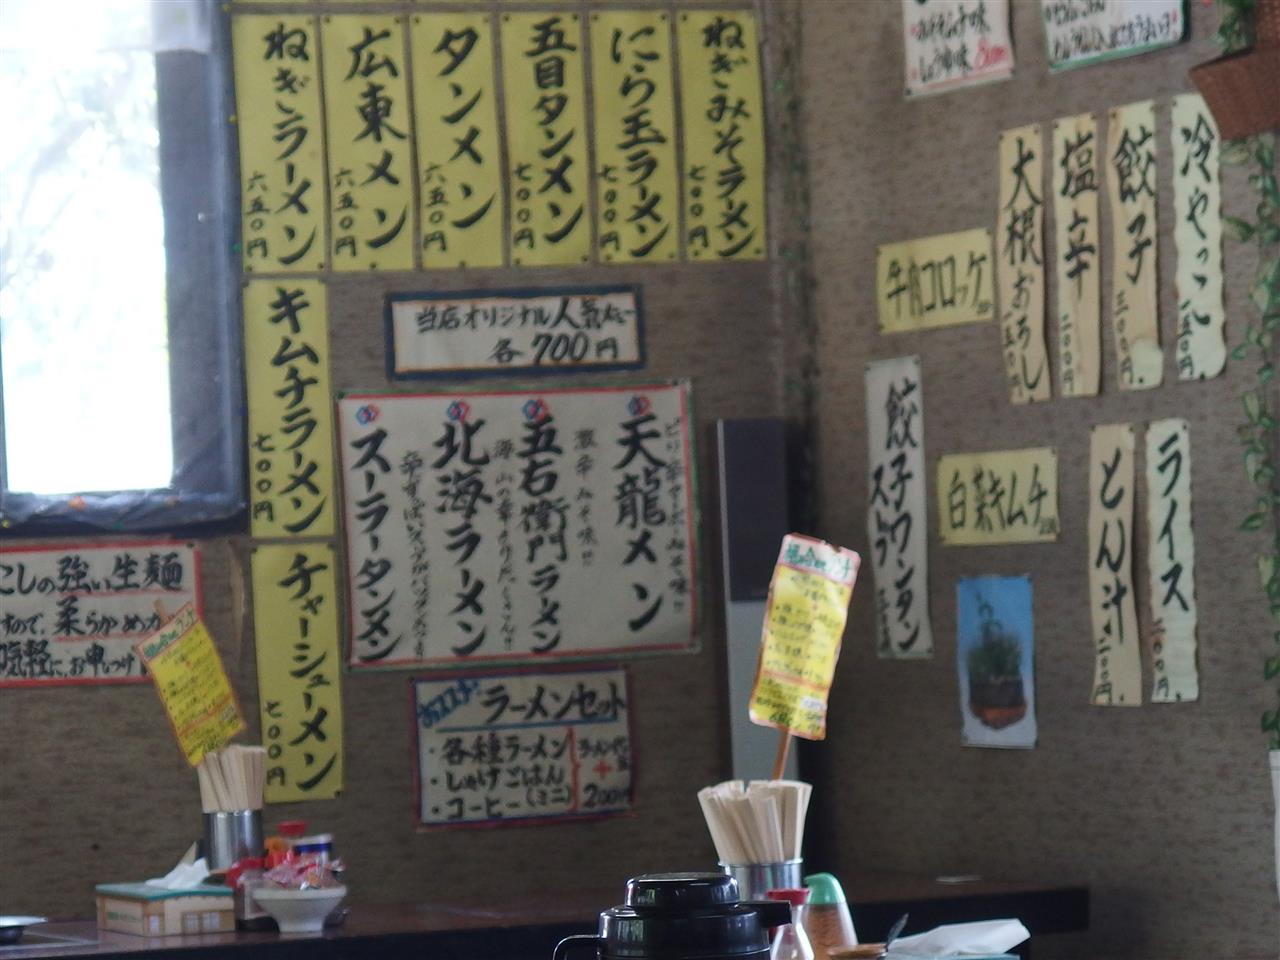 ねぎみそラーメン
七〇〇円
にら玉ラーメン
七〇〇円
五目タンメン
七〇〇円
タンメン
六五〇円
広東メン
六五〇円
ねぎラーメン
六五〇円
キムチラーメン
七〇〇円
チャーシューメン
七〇〇円
当店オリジナル人気メニュー
各700円
天龍メン
激辛みそ味!!
五右衛門ラーメン
海山の幸
北海ラーメン
スーラータンメン
おススメ!
ラーメンセット
・各種ラーメン
・しゅけごはん
・コーヒー(ミニ)
ラーメン代
+
200円
こしの強い生麺
すので、柔らかめ
気軽に、お申しつけ
しょうゆ味
冷やっこ
一五〇円
餃子
三〇〇円
塩辛
二〇〇円
大根おろし
一五〇円
牛肉コロッケ
餃子ワンタン
スープ
白菜キムチ
ライス
二〇〇円
とん汁
二〇〇円